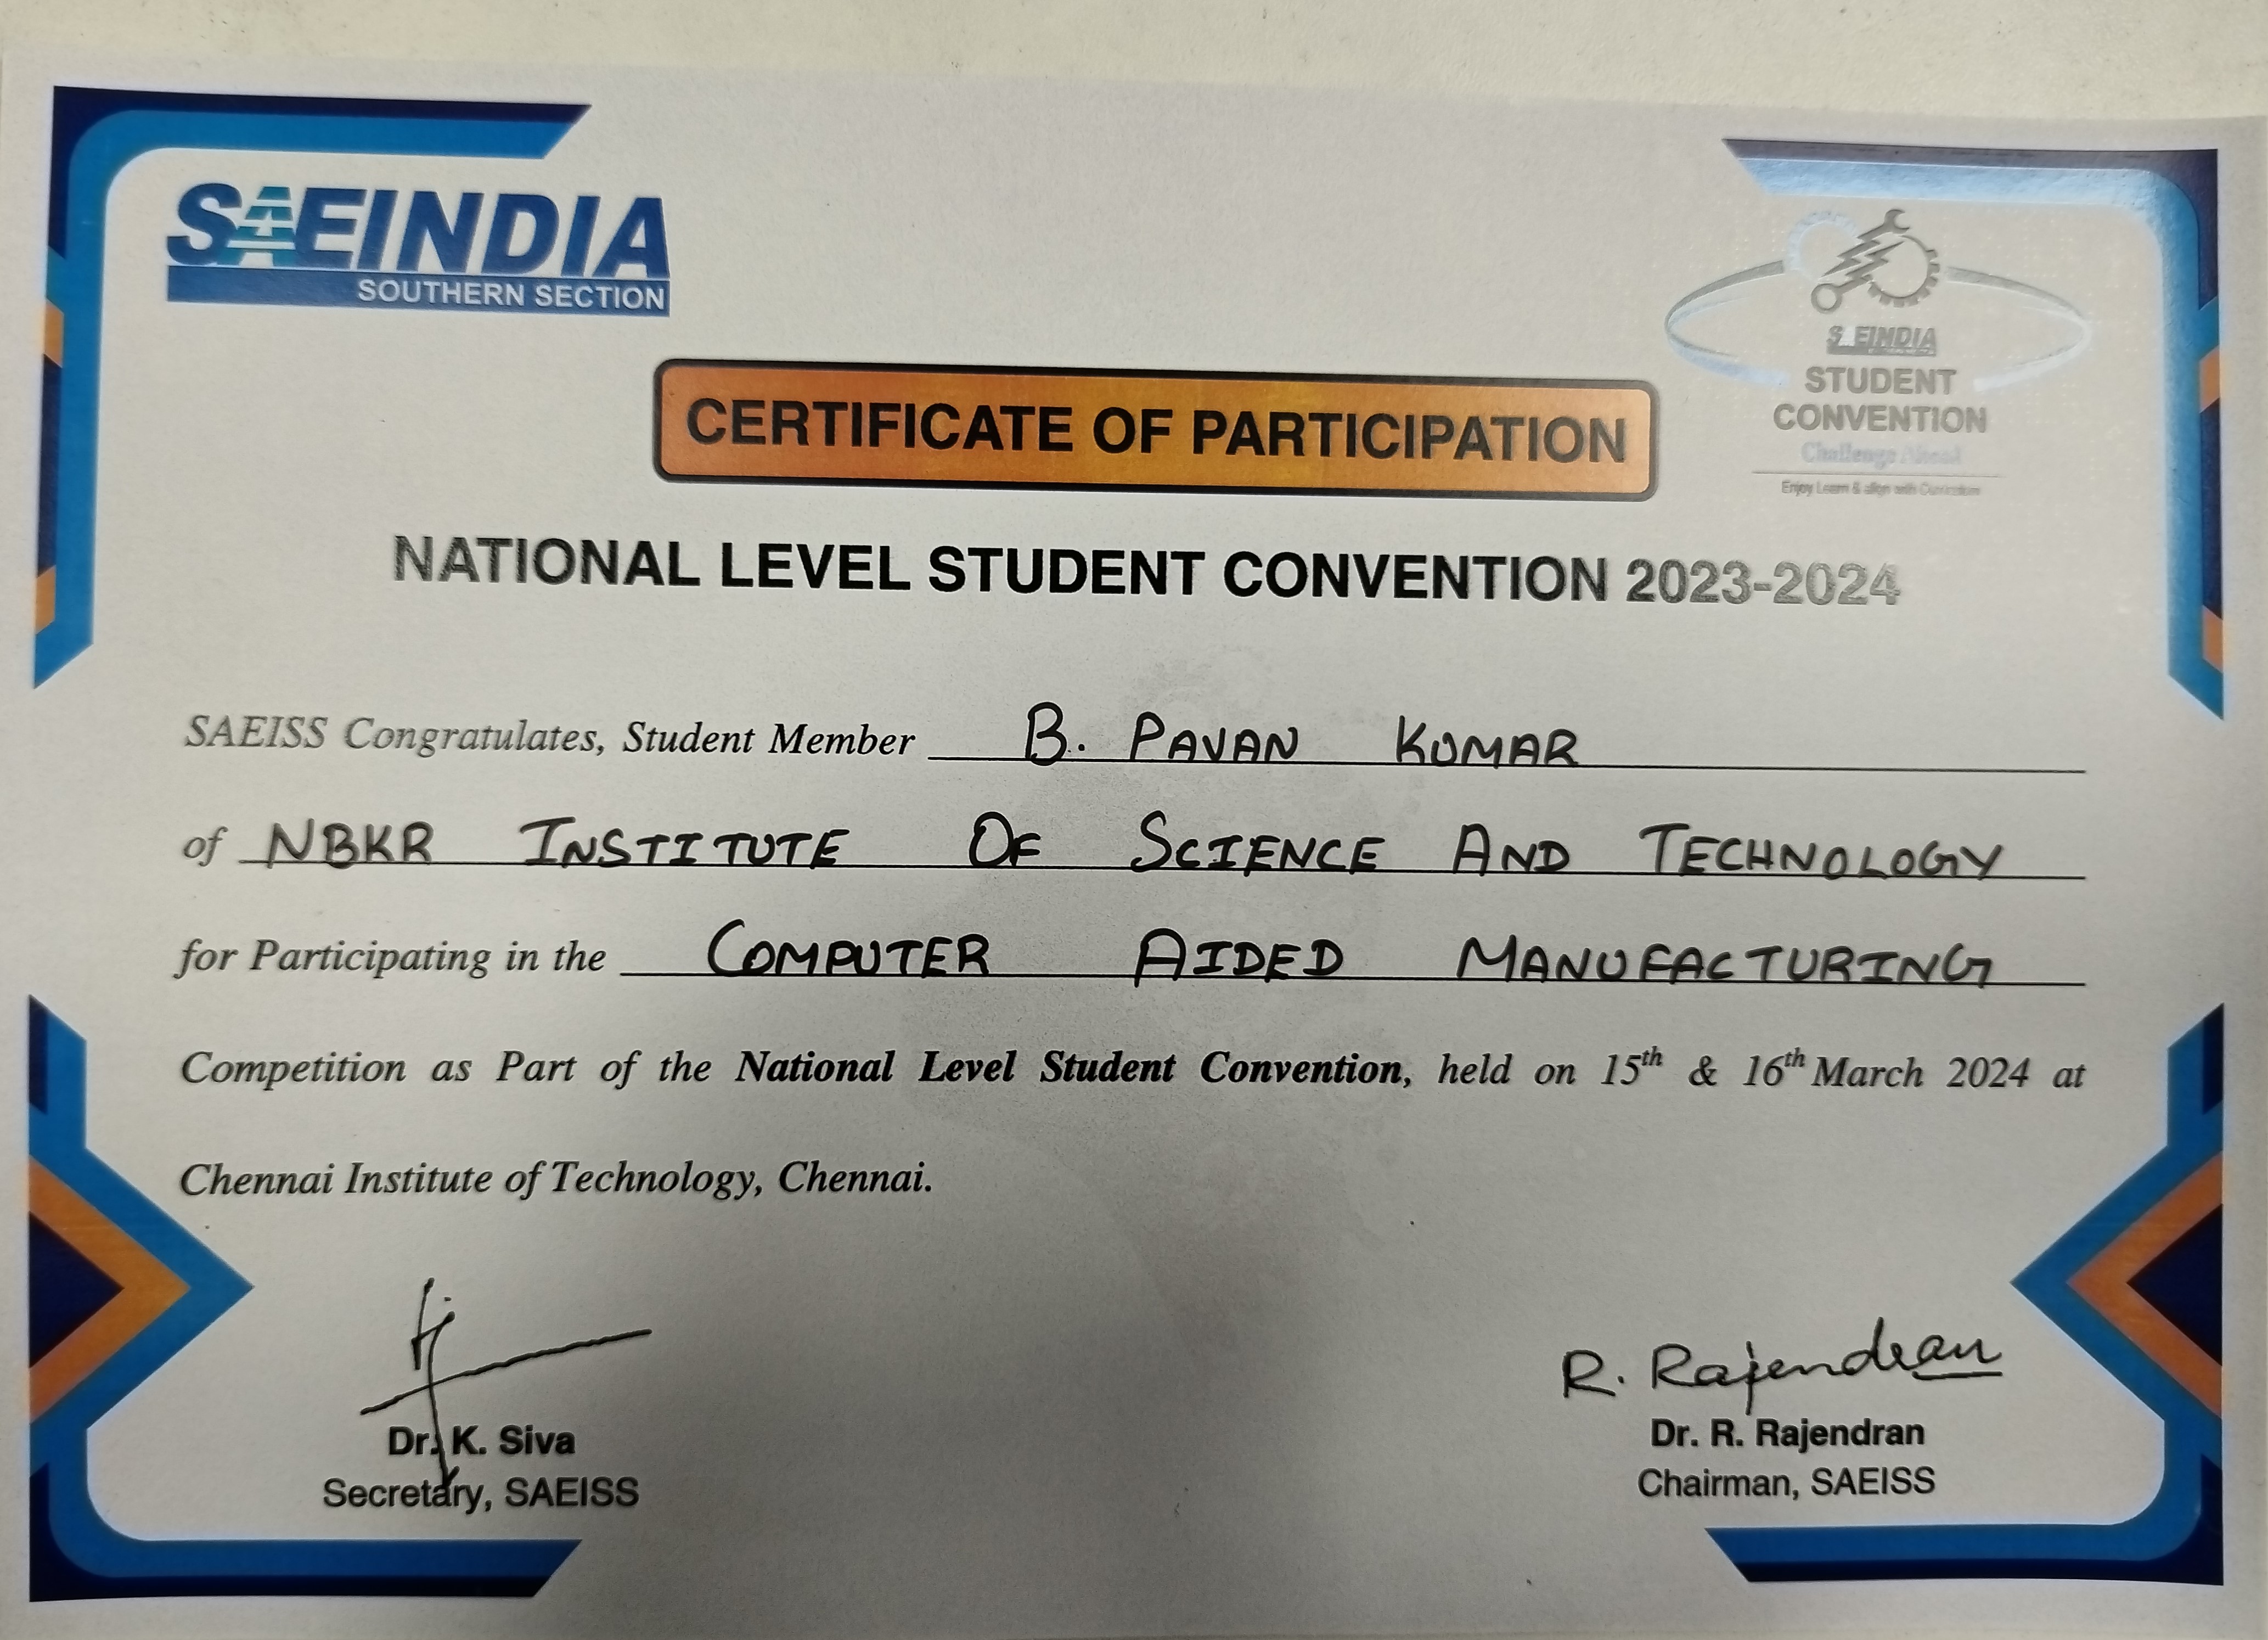 SAEINDIA
SOUTHERN SECTION
SAEINDIA
STUDENT
CONVENTION
Challenge Ahead
Enjoy Learn & align with Curriculum
CERTIFICATE OF PARTICIPATION
NATIONAL LEVEL STUDENT CONVENTION 2023-2024
SAEISS Congratulates, Student Member B. PAVAN KUMAR
of NBKR INSTITUTE OF SCIENCE AND TECHNOLOGY
for Participating in the COMPUTER AIDED MANUFACTURING
Competition as Part of the National Level Student Convention, held on 15th & 16th March 2024 at
Chennai Institute of Technology, Chennai.
R. Rajendran
Dr. K. Siva
Secretary, SAEISS
Dr. R. Rajendran
Chairman, SAEISS